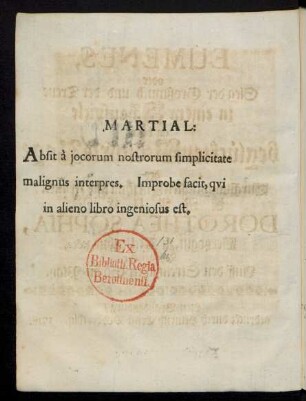 MARTIAL:
Absit à jocorum nostrorum simplicitate
malignus interpres. Improbe facit, qvi
in alieno libro ingeniosus est.
Ex
Biblioth. Regia
Berolinensi.